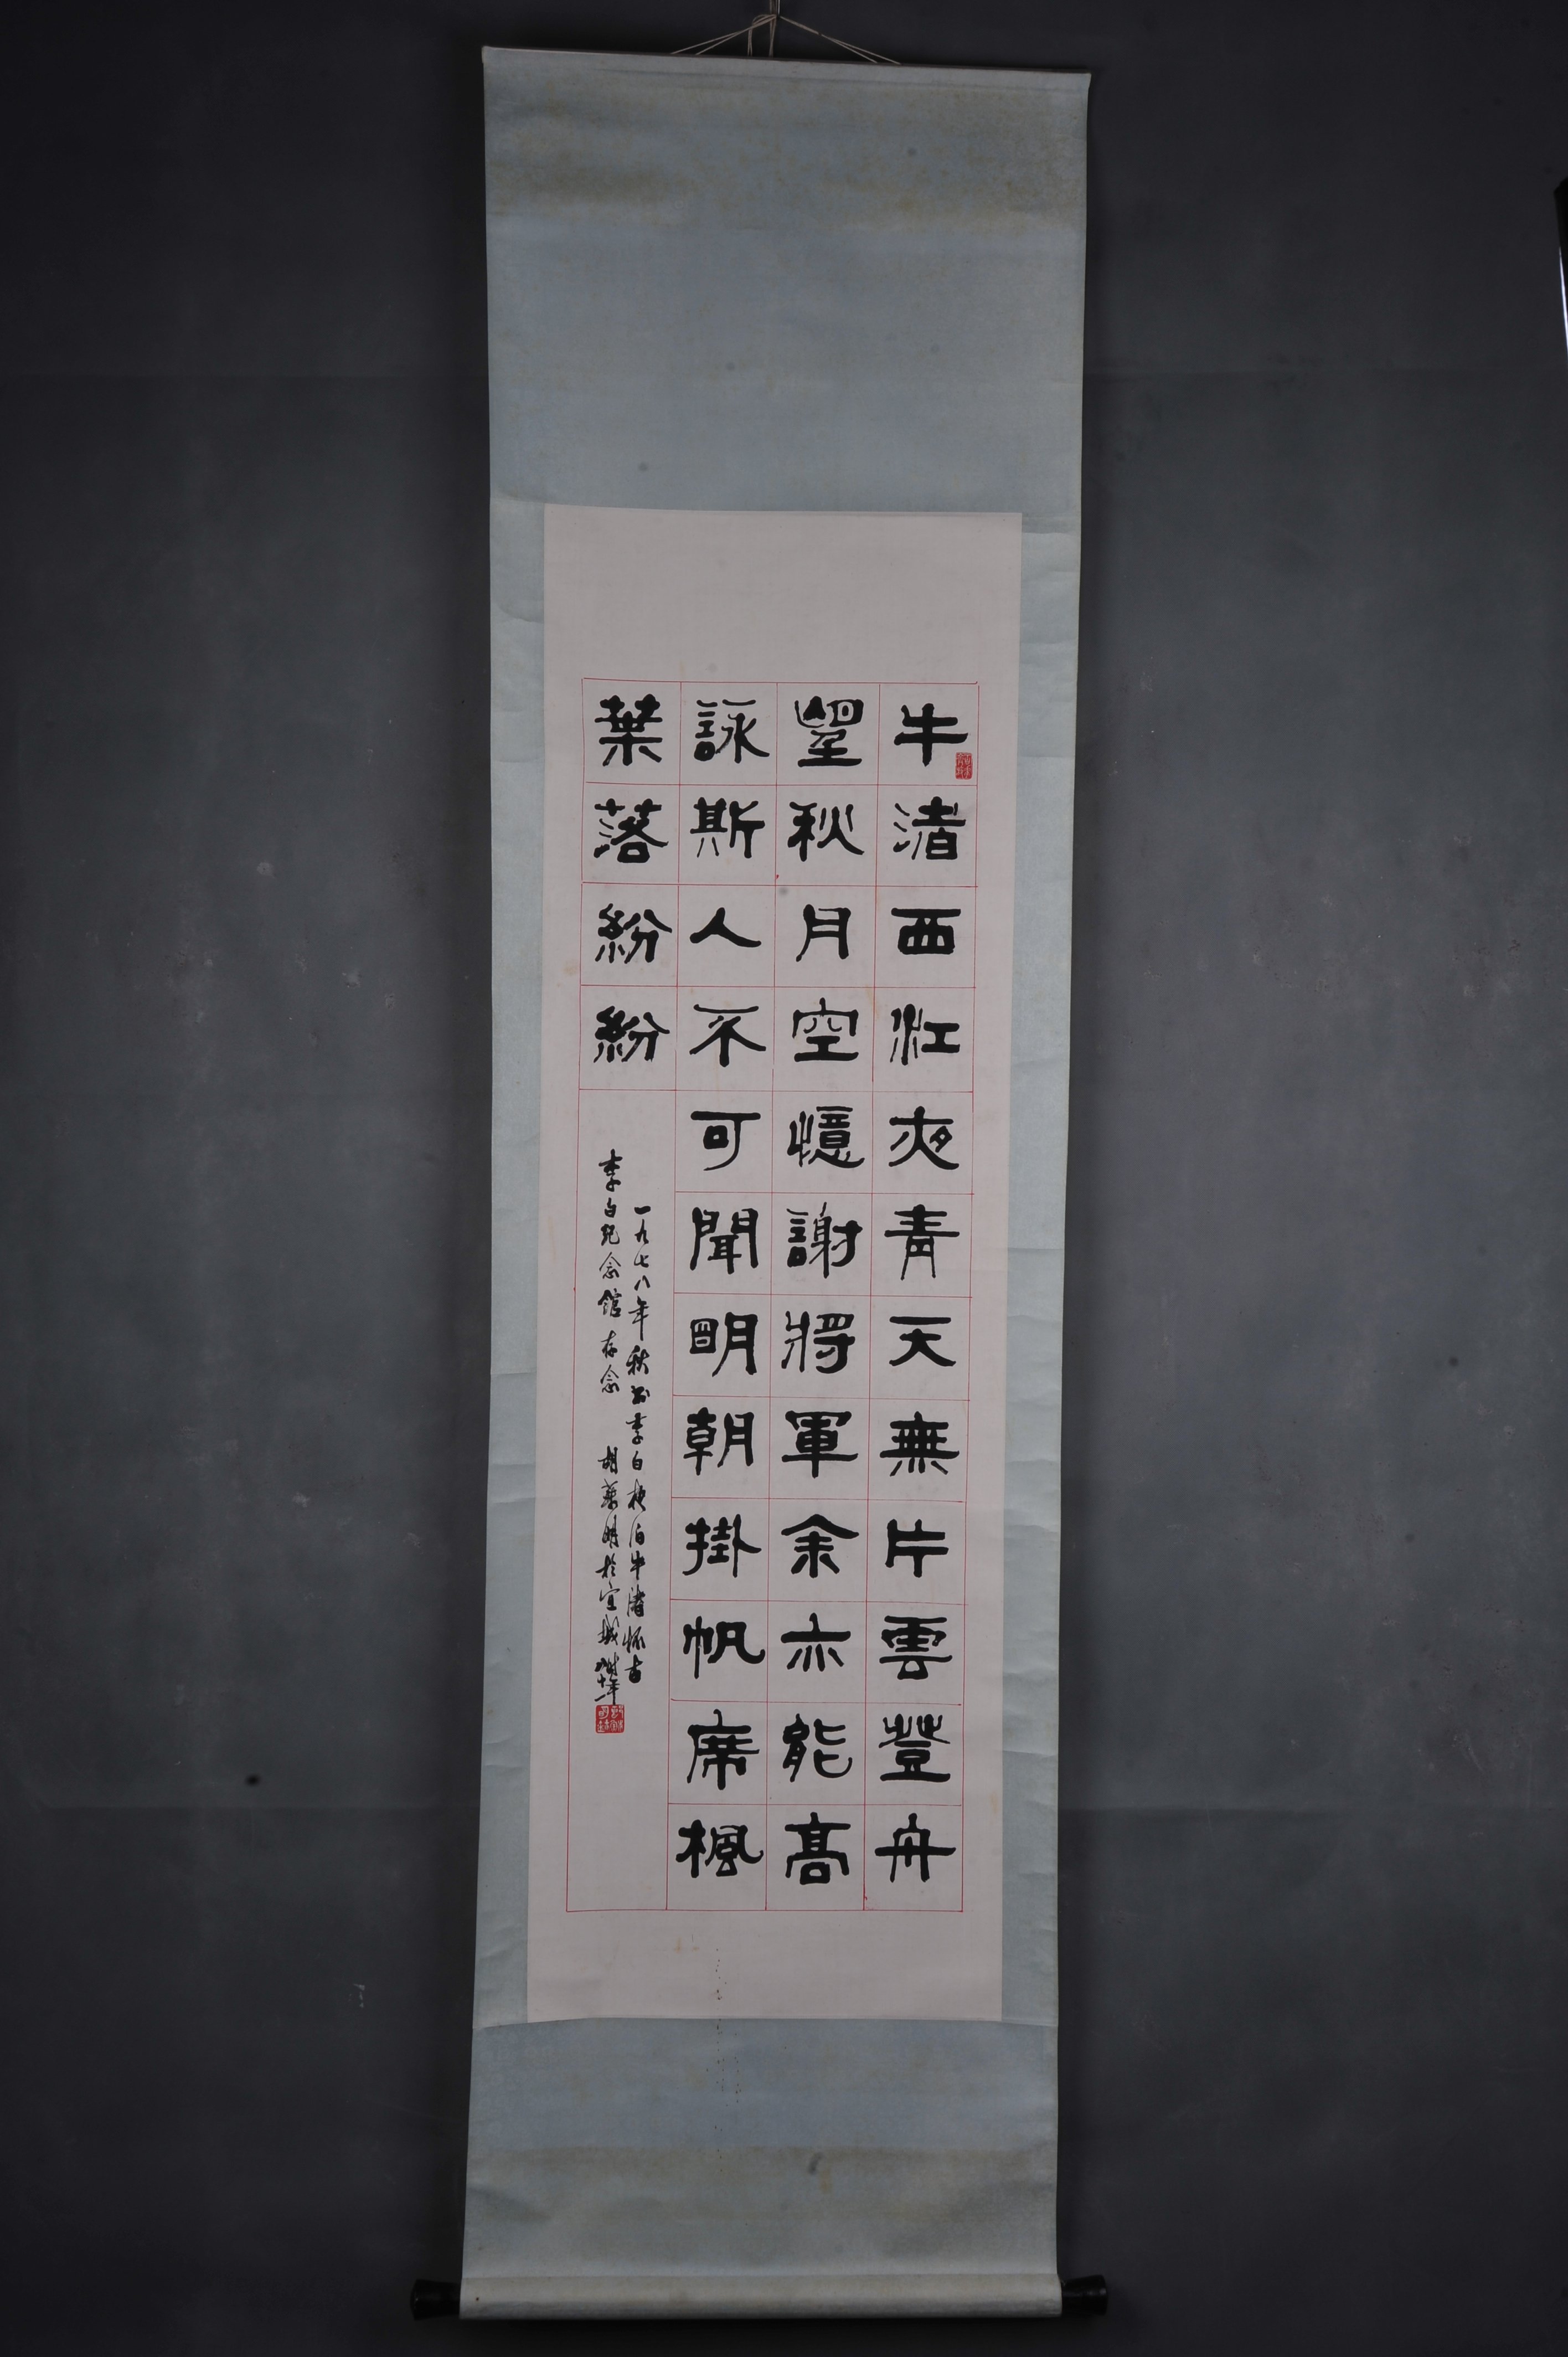 牛渚西江夜青天無片雲登舟
望秋月空憶謝將軍余亦能高
詠斯人不可聞明朝掛帆席楓
葉落紛紛
一九七八年秋書李白夜泊牛渚懷古
李白纪念館存念 胡葉明於宣城